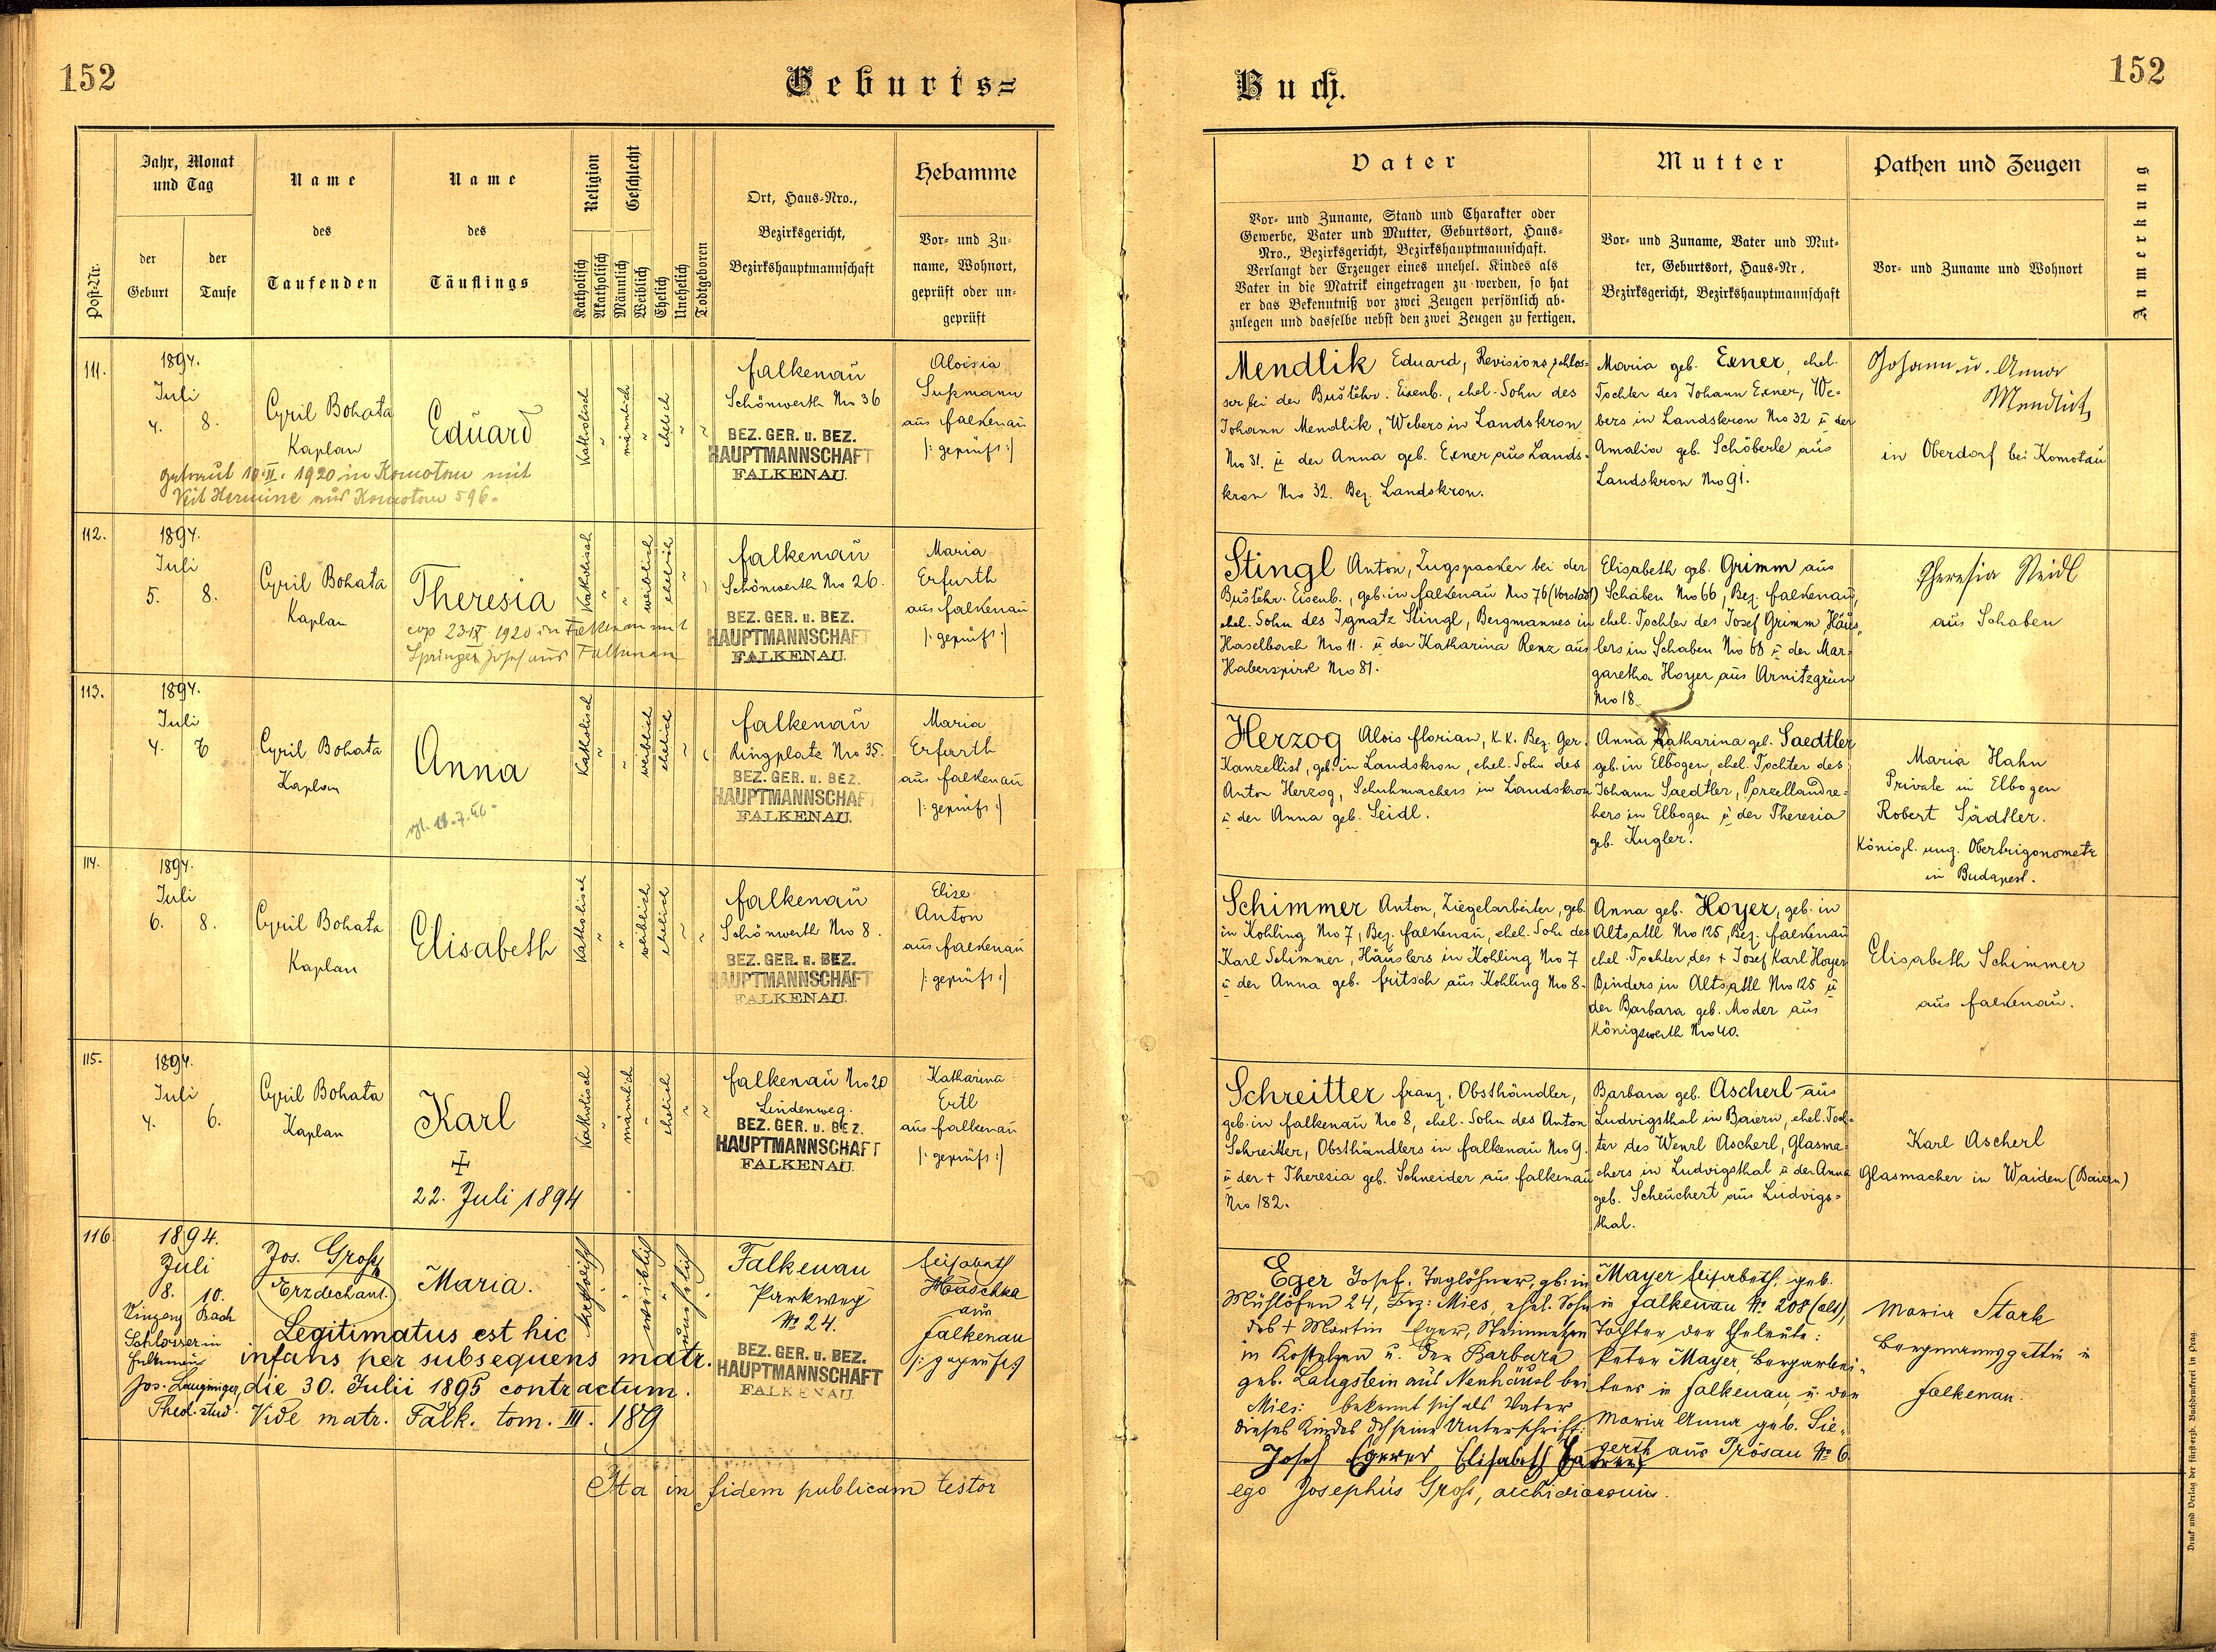 152
Geburts=
Jahr, Monat
und Tag
Name
Name
Religion
Geschlecht
Hebamme
Ort, Haus-Nro.,
des
des
Bezirksgericht,
Vor- und Zu-
Post-Nr.
der
Geburt
der
Taufe
Taufenden
Täuflings
Katholisch
Akatholisch
Männlich
Weiblich
Ehelich
Unehelich
Todtgeboren
Bezirkshauptmannschaft
name, Wohnort,
geprüft oder un-
geprüft
111.
1894.
Juli
4. 8.
Cyril Bohata
Kaplan
Eduard
Katholisch
"
männlich
"
ehelich
"
"
Falkenau
Schönwerth Nro 36
BEZ. GER. u. BEZ.
HAUPTMANNSCHAFT
FALKENAU.
Aloisia
Sußmann
aus Falkenau
/: geprüft :/
getraut 10.II. 1920 in Komotau mit
Veit Hermine aus Komotau 596.
112.
1894.
Juli
5. 8.
Cyril Bohata
Kaplan
Theresia
Katholisch
"
"
weiblich
ehelich
"
"
Falkenau
Schönwerth Nro 26.
BEZ. GER. u. BEZ.
HAUPTMANNSCHAFT
FALKENAU.
Maria
Erfurth
aus Falkenau
/: geprüft :/
cop 23.IX. 1920 in Falkenau mit
Springer Josef aus Falkenau
113.
1894.
Juli
4. 8
Cyril Bohata
Kaplan
Anna
Katholisch
"
"
weiblich
ehelich
"
"
Falkenau
Ringplatz Nro 35.
BEZ. GER. u. BEZ.
HAUPTMANNSCHAF
FALKENAU.
Maria
Erfurth
aus Falkenau
/: geprüft :/
18.7.46
114.
1894.
Juli
6. 8.
Cyril Bohata
Kaplan
Elisabeth
Katholisch
"
"
weiblich
ehelich
"
"
Falkenau
Schönwerth Nro 8.
BEZ. GER. u. BEZ.
HAUPTMANNSCHAFT
FALKENAU.
Elise
Anton
aus Falkenau
/: geprüft :/
115.
1894.
Juli
4. 6.
Cyril Bohata
Kaplan
Karl
Katholisch
"
männlich
"
ehelich
"
"
Falkenau Nro 20
Lindenweg.
BEZ. GER. u. BEZ.
HAUPTMANNSCHAFT
FALKENAU.
Katharina
Ertl
aus Falkenau
/: geprüft :/
22. Juli 1894
116
1894.
Juli
8. 10.
Jos. Groß
Erzdechant.
Maria.
Katholisch
"
"
weiblich
"
unehelich
Falkenau
Parkweg
No 24.
BEZ. GER. u. BEZ.
HAUPTMANNSCHAFT
FALKENAU
Elisabeth
Haschka
aus
Falkenau
/: geprüft :/
Vinzenz Bach
Schlosser in
Falkenau
Legitimatus est hic
infans per subsequens matr.
die 30. Julii 1895 contractum.
Theol. stud. Vide matr. Falk. tom. III. 189
Ita in fidem publicam testor
152
Buch.
Vater
Mutter
Pathen und Zeugen
Anmerkung
Vor- und Zuname, Stand und Charakter oder
Gewerbe, Vater und Mutter, Geburtsort, Haus-
Nro., Bezirksgericht, Bezirkshauptmannschaft.
Verlangt der Erzeuger eines unehel. Kindes als
Vater in die Matrik eingetragen zu werden, so hat
er das Bekenntniß vor zwei Zeugen persönlich ab-
zulegen und dasselbe nebst den zwei Zeugen zu fertigen.
Vor- und Zuname, Vater und Mut-
ter, Geburtsort, Haus-Nr.
Bezirksgericht, Bezirkshauptmannschaft
Vor- und Zuname und Wohnort
Mendlik Eduard, Revisionsschlos-
ser bei der Buštěhr. Eisenb., ehel. Sohn des
Johann Mendlik, Webers in Landskron
No 31. u der Anna geb. Exner aus Lands-
kron Nro 32. Bez. Landskron.
Maria geb. Exner, ehel.
Tochter des Johann Exner, We-
bers in Landskron No 32 u der
Amalia geb. Schöberle aus
Landskron No 91.
Johann u. Anna
Mendlik
in Oberdorf bei Komotau
Stingl Anton, Zugspacker bei der
Buštěhr. Eisenb., geb. in Falkenau No 76 (Vorstadt)
ehel. Sohn des Ignatz Stingl, Bergmannes in
Haselbach Nro 11. u der Katharina Renz aus
Haberspirk Nro 81.
Elisabeth geb. Grimm aus
Schaben No 66, Bez. Falkenau,
ehel. Tochter des Josef Grimm, Häus-
lers in Schaben No 68 u der Mar-
garetha Hoyer aus Arnitzgrün
Nro 18.
Theresia Neidl
aus Schaben
Herzog Alois Florian, k.k. Bez. Ger.
Kanzellist, geb. in Landskron, ehel. Sohn des
Anton Herzog, Schuhmachers in Landskron
u der Anna geb. Seidl.
Anna Katharina geb. Saedtler
geb. in Elbogen, ehel. Tochter des
Johann Saedtler, Porzellandre-
hers in Elbogen u der Theresia
geb. Kugler.
Maria Hahn
Private in Elbogen
Robert Sädtler.
Königl. ung. Obertrigonometr
in Budapest.
Schimmer Anton, Ziegelarbeiter, geb.
in Kohling No 7, Bez. Falkenau, ehel. Sohn des
Karl Schimmer, Häuslers in Kohling No 7
u der Anna geb. Fritsch aus Kohling No 8.
Anna geb. Hoyer, geb. in
Altsattl No 125, Bez. Falkenau
ehel. Tochter des + Josef Karl Hoyer
Binders in Altsattl Nro 125 u
der Barbara geb. Moder aus
Königswerth Nro 40.
Elisabeth Schimmer
aus Falkenau.
Schreitter Franz, Obsthändler,
geb. in Falkenau No 8, ehel. Sohn des Anton
Schreitter, Obsthändlers in Falkenau No 9.
u der + Theresia geb. Schneider aus Falkenau
No 182.
Barbara geb. Ascherl aus
Ludvigsthal in Baiern, ehel. Toch-
ter des Wenzl Ascherl, Glasma-
chers in Ludvigsthal u der Anna
geb. Scheuchert aus Ludvigs-
thal.
Karl Ascherl
Glasmacher in Waiden (Baiern)
Eger Josef, Taglöhner, geb. in
Mühlhöfen 24, Bez: Mies, ehel. Sohn
des + Martin Eger, Steinmetzen
in Kostelzen u. der Barbara
geb. Langstein aus Neuhäusl bei
Mies: bekennt sich als Vater
dieses Kindes d. seine Unterschrift:
Josef Egerer Elisabeth
Mayer Elisabeth, geb.
in Falkenau No 208 (alt),
Tochter der Eheleute:
Peter Mayer, Bergarbei-
ters in Falkenau, u. der
Maria Anna geb. Sie-
gerth aus Prösau No 6.
Maria Stark
Bergmannsgattin in
Falkenau.
ego Josephus Groß, archidiaconus.
Druck und Verlag der fürsterzb. Buchdruckerei in Prag.